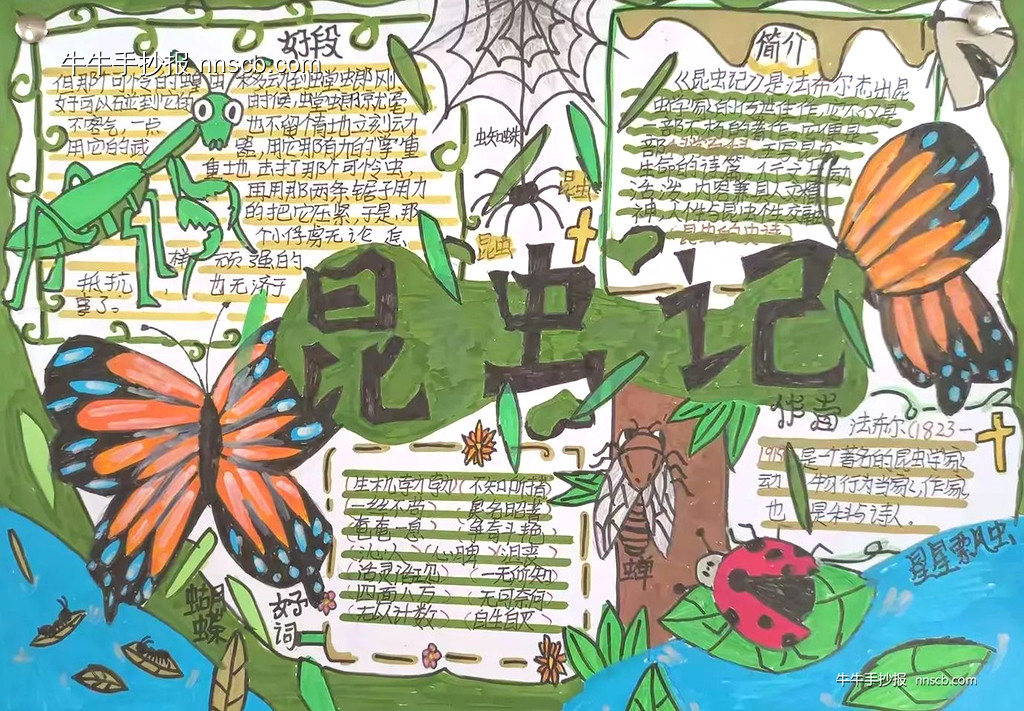 牛牛手抄报 nnscb.com
好段
但那个可怜的蝗虫
好可以碰到它的
不客气,一点
用它的武
移动到螳螂刚
时候,螳螂就毫
也不留情地立刻动
器,用它那有力的"掌"重
重地击打那个可怜虫,
再用那两条锯子用力
的把它压紧,于是,那
个小俘虏无论怎
样顽强的
抵抗,也无济于
事了。
蜘蛛
昆虫
昆虫
简介
《昆虫记》是法布尔杰出昆
虫学家的传世佳作,亦不仅是
一部不朽的著作,它便是一
生命的诗篇
(昆虫的史诗)
昆虫记
作者
法布尔(1823-
1915)是一个著名的昆虫学家
动物行为学家、作家
也是科与诗人。
(生机勃勃)(不知所措)
一丝不苟
(奄奄一息)(争奇斗艳)
(沁人心脾)(沮丧)
(活灵活现)(一无所知)
(四面八方)(无可奈何)
(无以计数)(自生自灭)
好词
蝴蝶
蝉
星星瓢虫
牛牛手抄报 nnscb.com